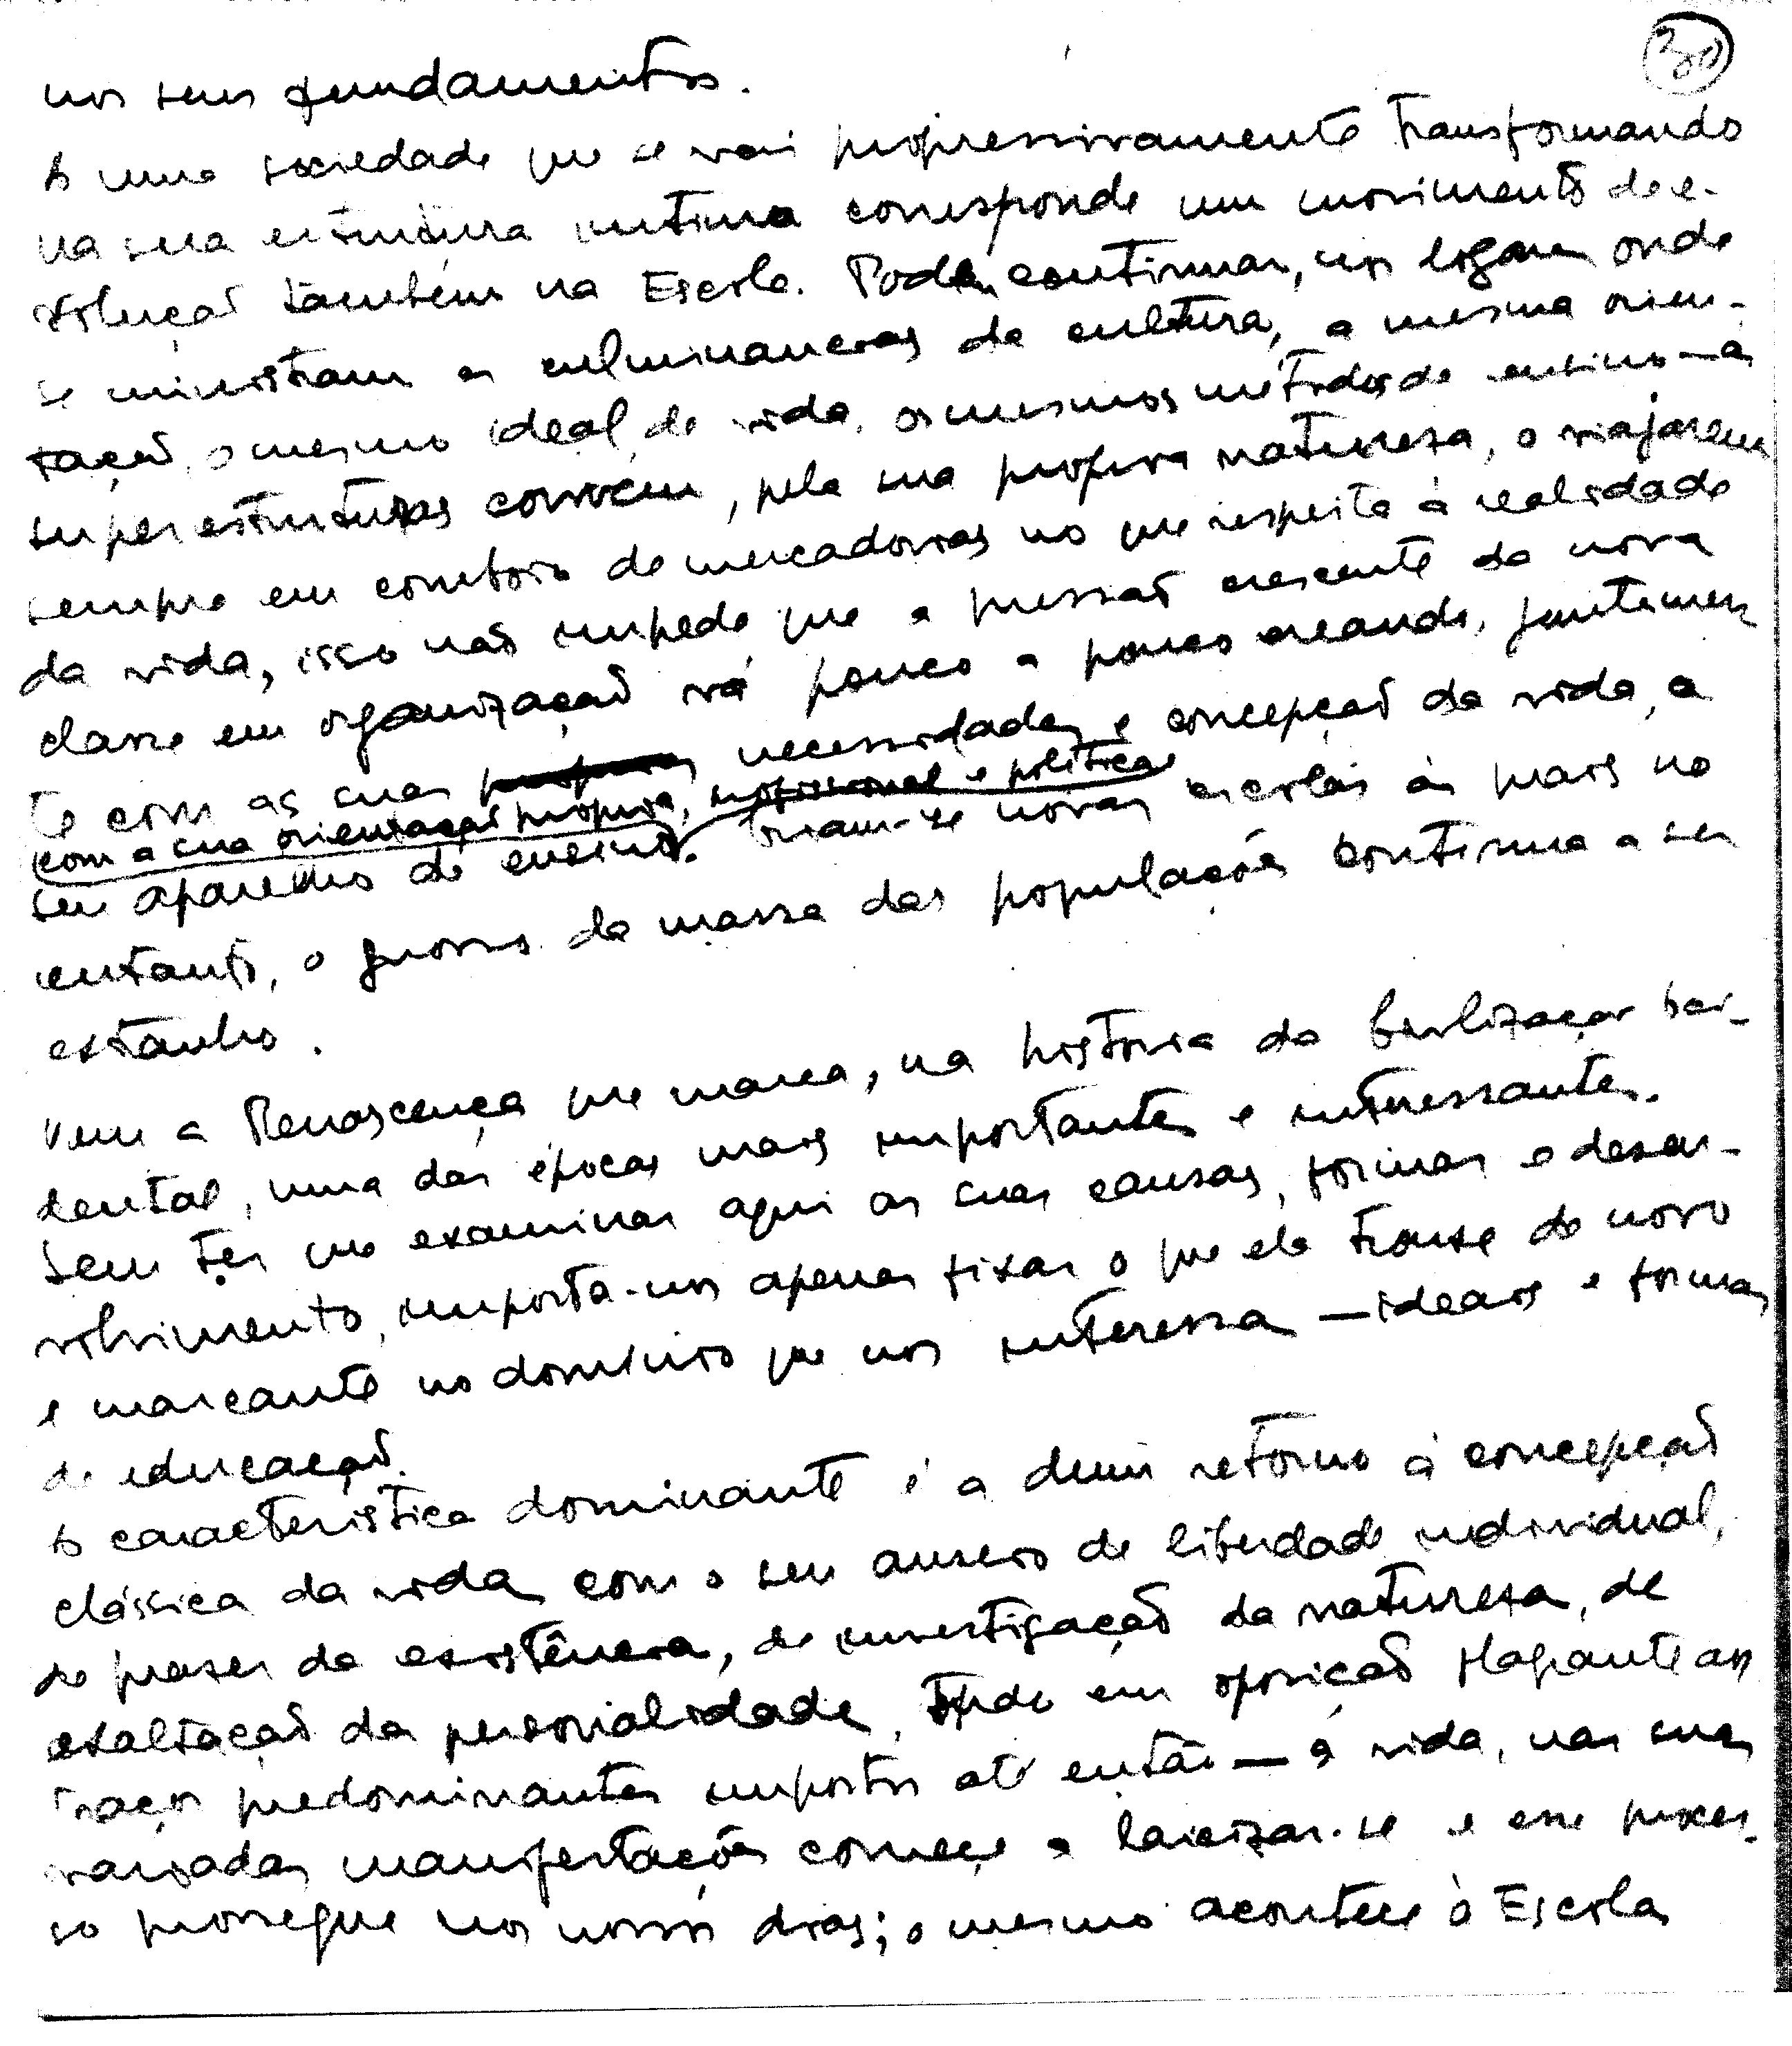 30
nos seus fundamentos.
A uma sociedade que se vai progressivamente transformando
na sua estrutura intima corresponde um movimento de e-
volução também na Escola. Podem continuar, nos logares onde
se ministram as culminancias da cultura, a mesma orien-
tação, o mesmo ideal de vida, os mesmos métodos de ensino — às
superestruturas convém, pela sua propria natureza, o viajarem
sempre em comboio de mercadorias no que respeita à realidade
da vida, isso não impede que a pressão crescente da nova
classe em organização vá pouco a pouco creando, juntamen-
te com as suas necessidades e concepção da vida, o
com a sua orientação propria, profissional e politica
seu aparelho de ensino. Criam-se novas escolas às mais no
entanto, o grosso da massa das populações continua a ser
estranho.
Vem a Renascença que marca, na história da civilização oci-
dental, uma das épocas mais importantes e interessantes.
Sem ter que examinar aqui as suas causas, formas e desen-
volvimento, importa-nos apenas fixar o que ela trouxe de novo
e marcante no dominio que nos interessa — ideais e formas
de educação.
A caracteristica dominante é a dum retorno à concepção
clássica da vida com o seu anseio de liberdade individual,
de prazer da existência, de investigação da natureza, de
exaltação da personalidade, tudo em oposição flagrante aos
traços predominantes impostos até então — a vida, nas suas
variadas manifestações começa a laicizar-se e esse proces-
so prossegue nos nossos dias; o mesmo acontece à Escola